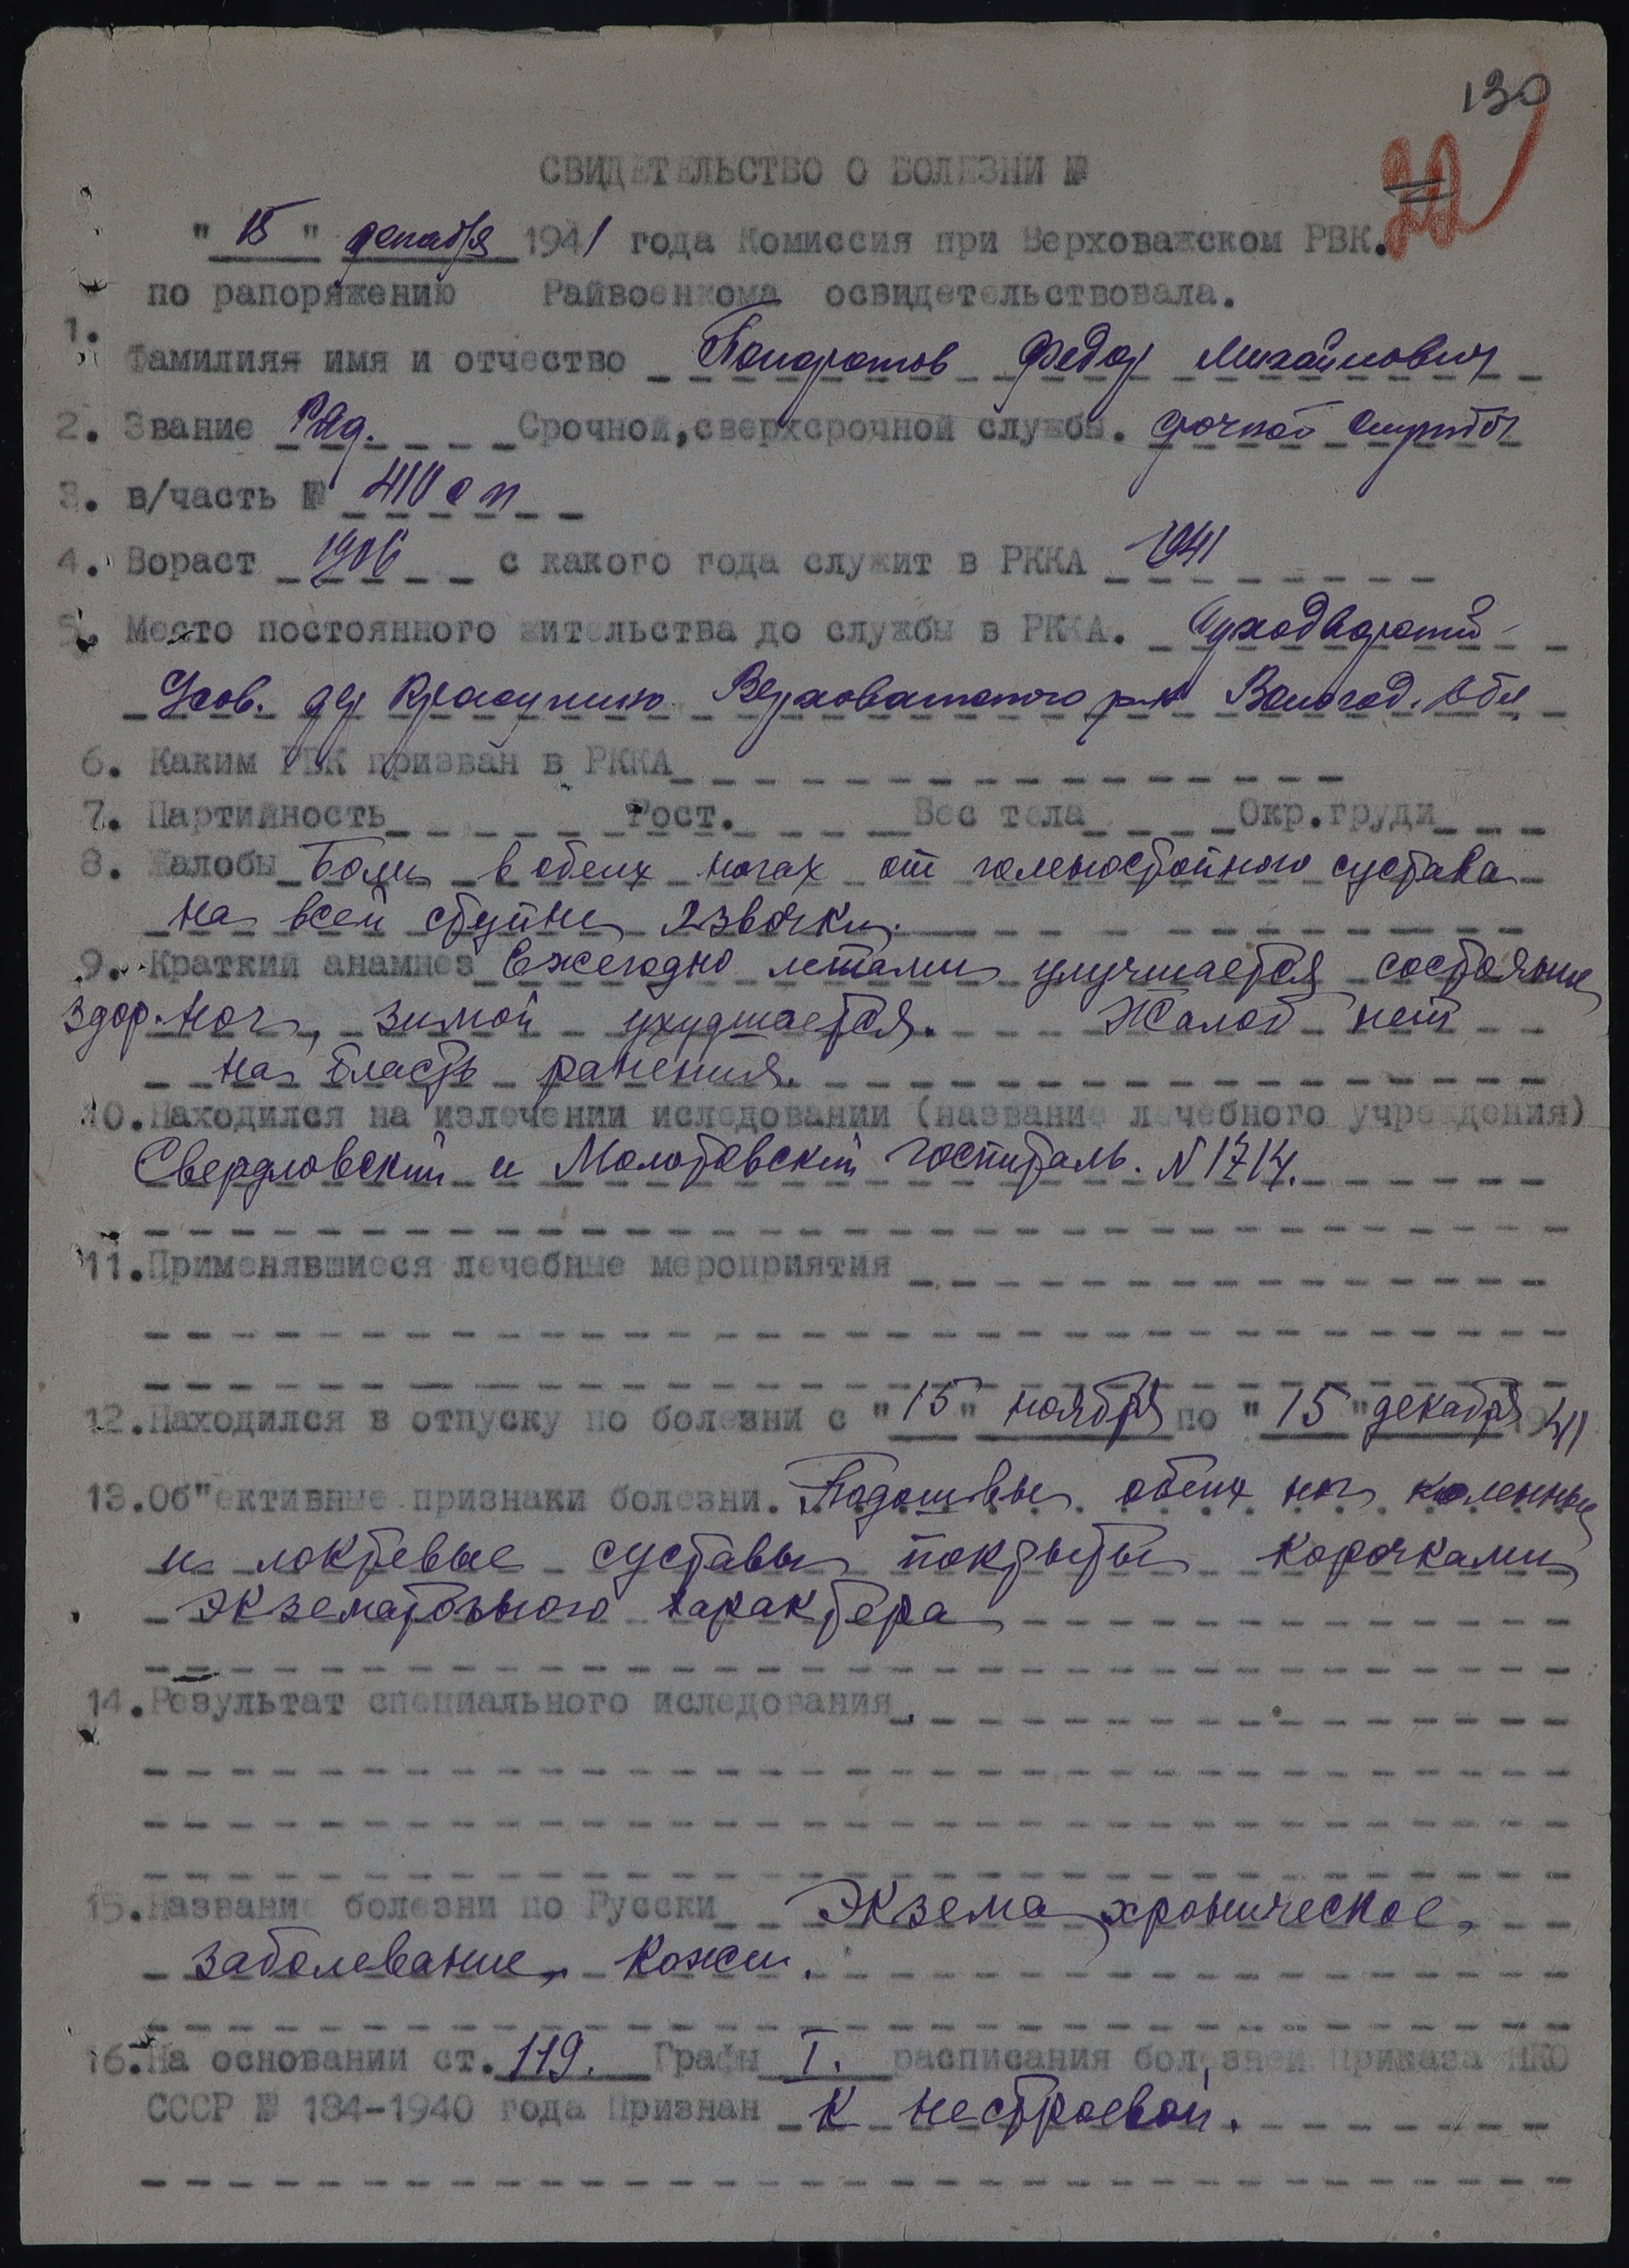 130
20
СВИДЕТЕЛЬСТВО О БОЛЕЗНИ №
" 15 " декабря 1941 года Комиссия при Верховажском РВК.
по рапоряжению Райвоенкома освидетельствовала.
1. Фамилия имя и отчество Федор Михайлович
2. Звание Ряд. Срочной, сверхсрочной службы. срочной службы
3. в/часть № 410 с п
4. Вораст 1906 с какого года служит в РККА 1941
5. Место постоянного жительства до службы в РККА.
дер Верховажского р-на Вологод. Обл
6. Каким РВК призван в РККА
7. Партийность Рост. Вес тела Окр.груди
8. Жалобы Боли в обеих ногах от голеностопного сустава
на всей ступне язвочки.
9. Краткий анамнез Ежегодно летами улучшается состояние
здор. ног, зимой ухудшается. Жалоб нет
на бласть ранения.
10. Находился на излечении иследовании (название лечебного учреждения)
Свердловский и Молотовский госпиталь. N 1714.
11. Применявшиеся лечебные мероприятия
12. Находился в отпуску по болезни с " 15 " ноября по " 15 " декабря 1941
13. Об"ективные признаки болезни. Подошвы обеих ног коленные
и локтевые суставы покрыты корочками
экзематозного характера
14. Результат специального иследования
15. Название болезни по Русски Экзема хроническое
заболевание кожи.
16. На основании ст. 119. Графы I. расписания болезней приказа НКО
СССР № 184-1940 года Признан К нестроевой.